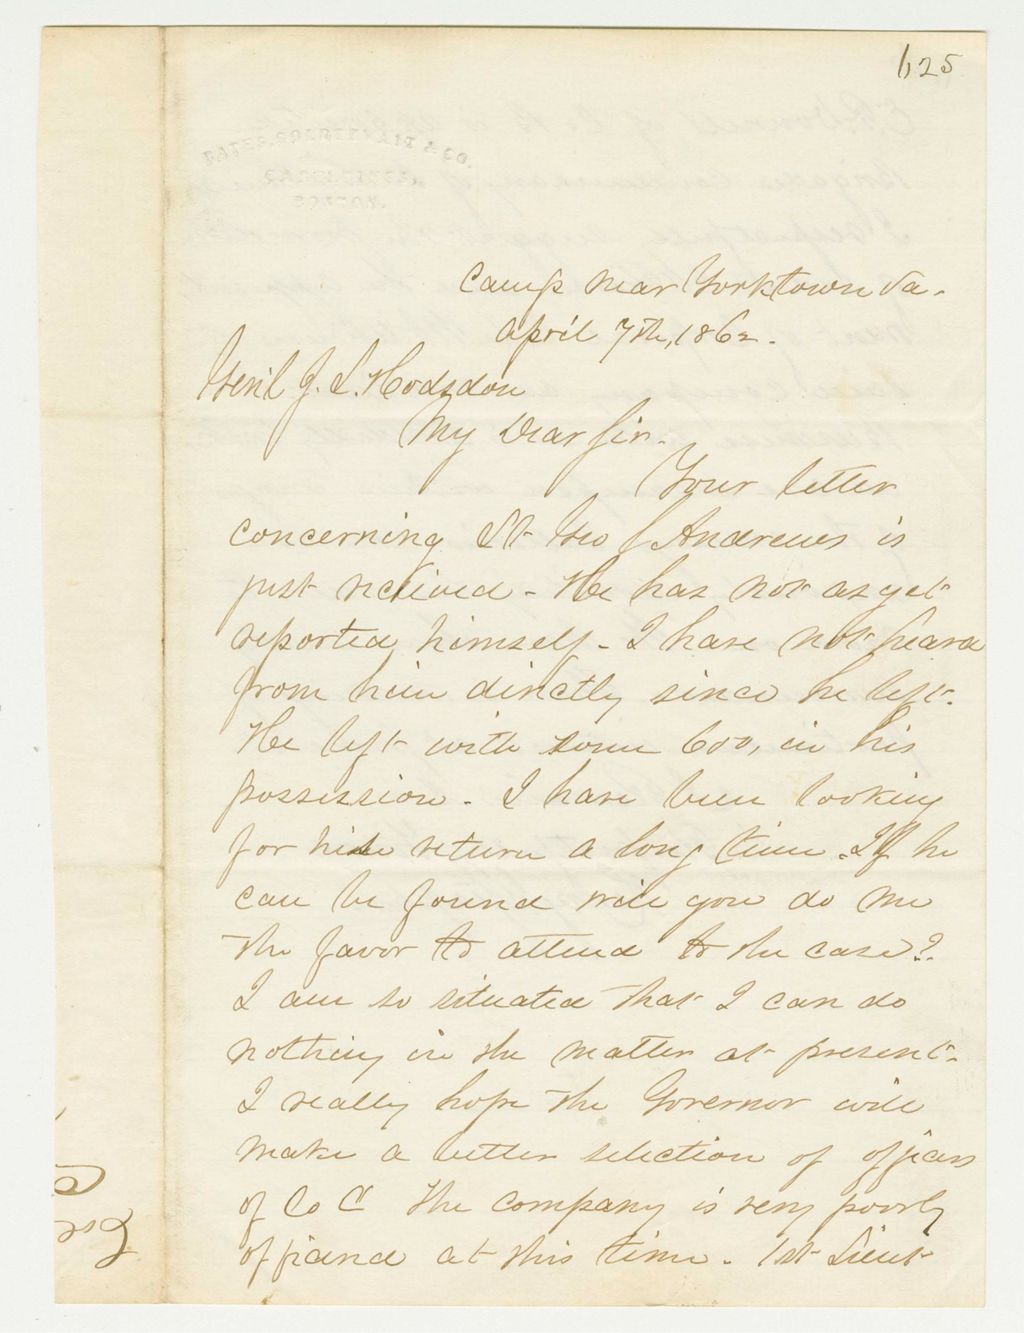 625
Camp near Yorktown Va.
April 7th, 1862.
Gen'l J. L. Hodsdon
My Dear Sir.
Your letter
concerning Lt Geo J Andrews is
just recieved - He has not as yet
reported himself - I have not heard
from him directly since he left.
He left with some 600, in his
possession - I have been looking
for his return a long time. If he
can be found will you do me
the favor to attend to the case?
I am so situated that I can do
nothing in the matter at present.
I really hope the Governor will
make a better selection of officers
of Co C The company is very poorly
officered at this time. 1st Lieut